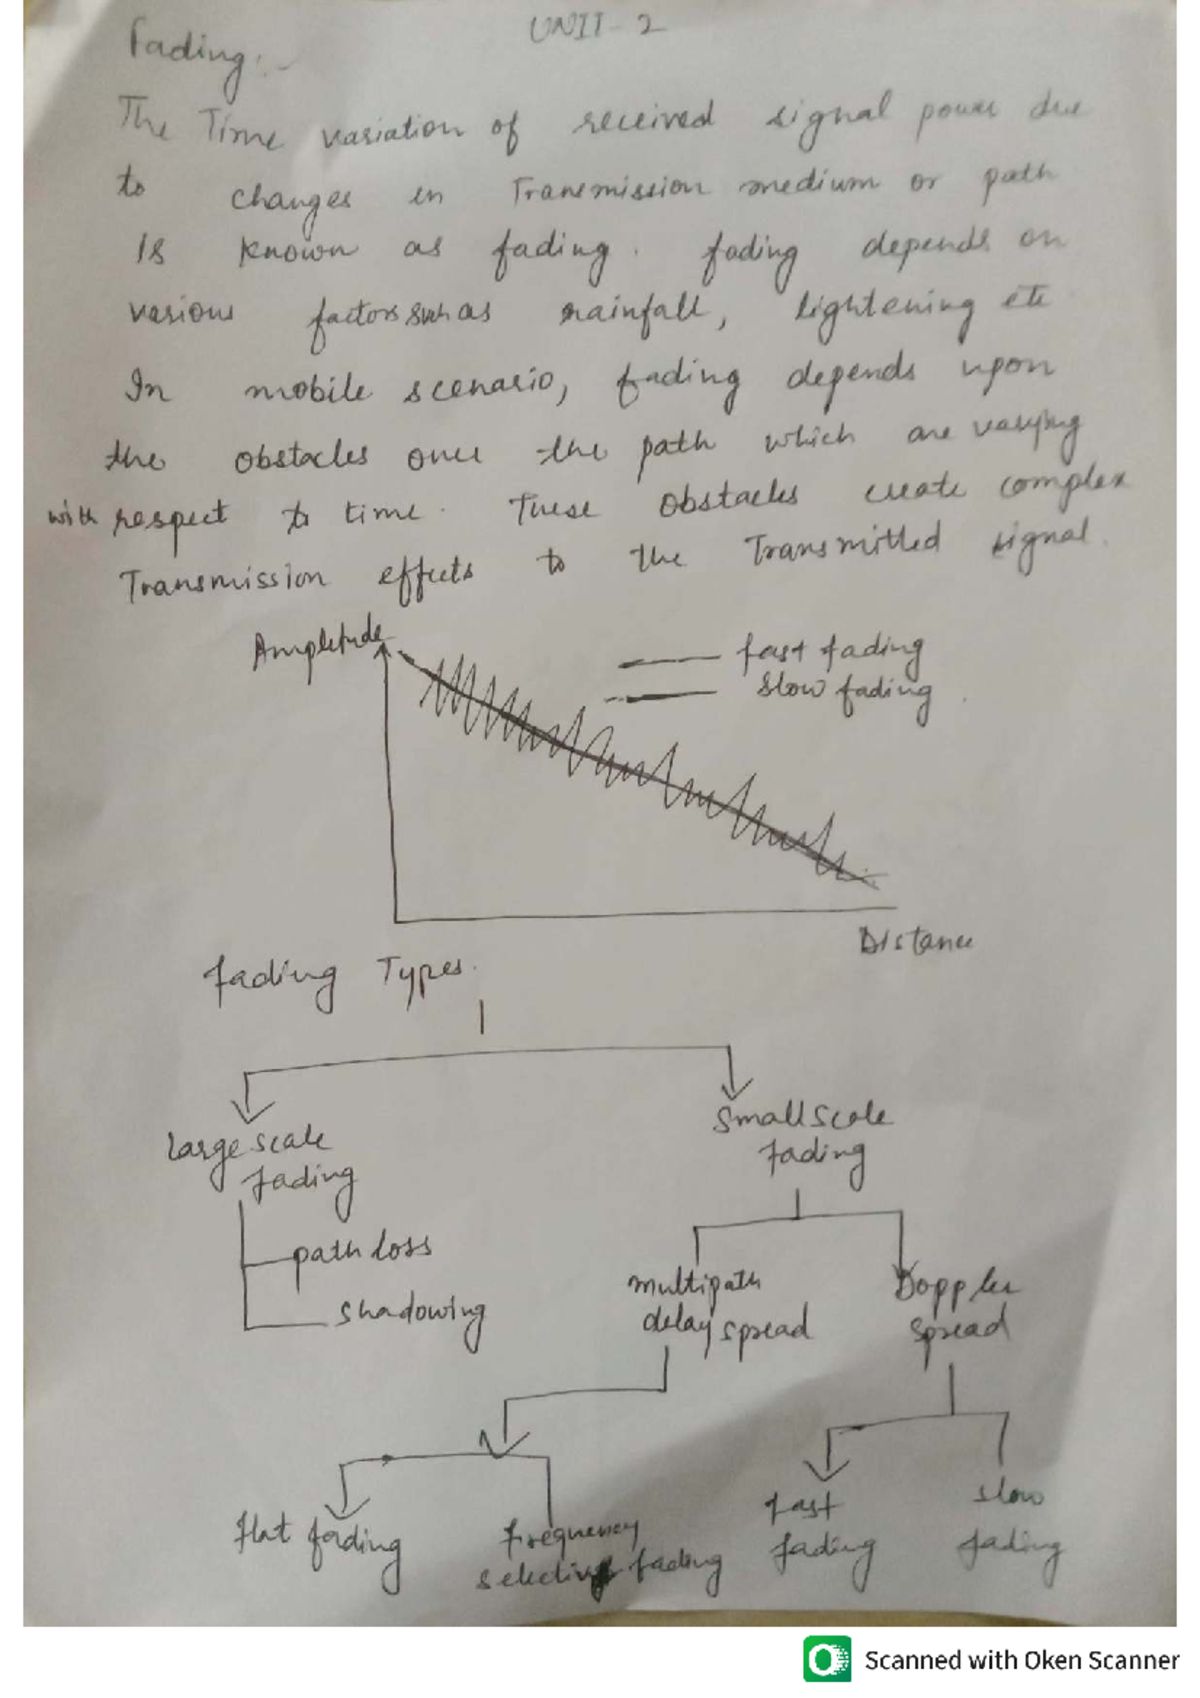 UNIT-2
Fading:-
The Time variation of received signal power due
to changes in Transmission medium or path
Is known as fading. fading depends on
various factors such as rainfall, lightening etc
In mobile scenario, fading depends upon
the obstacles over the path which are varying
with respect to time. These obstacles create complex
Transmission effects to the Transmitted signal.
Amplitude
fast fading
Slow fading
Distance
fading Types.
large scale
fading
small scale
fading
path loss
shadowing
multipath
delay spread
Doppler
spread
flat fading
frequency
selective fading
fast
fading
slow
fading
Scanned with Oken Scanner